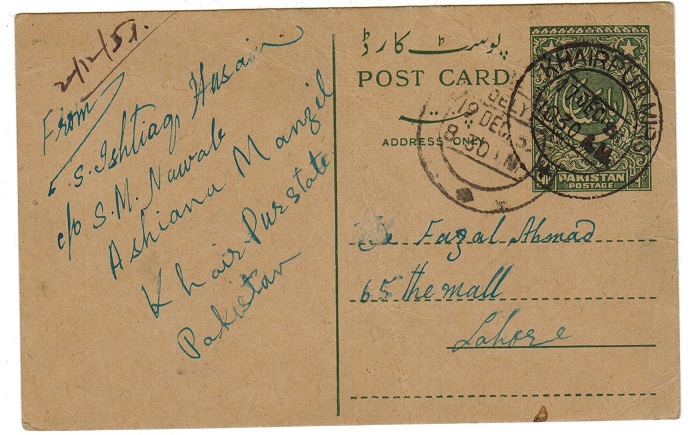 2/12/51.
From
S. Ishtiaq Husain
c/o S.M. Nawab
Ashiana Manzil
Khair Pur state
Pakistan
پوسٹ کارڈ
POST CARD
پتہ
ADDRESS ONLY
KHAIRPUR MIRS
DEC
DELY
12 DEC
8-30
PAKISTAN
POSTAGE
Fazal Ahmad
65 the mall
Lahore